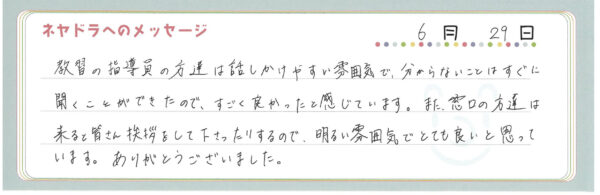 ネヤドラへのメッセージ
6月 29日
教習の指導員の方達は話しかけやすい雰囲気で、分からないことはすぐに
聞くことができたので、すごく良かったと感じています。また、窓口の方達は
来ると皆さん挨拶をして下さったりするので、明るい雰囲気でとても良いと思って
います。ありがとうございました。